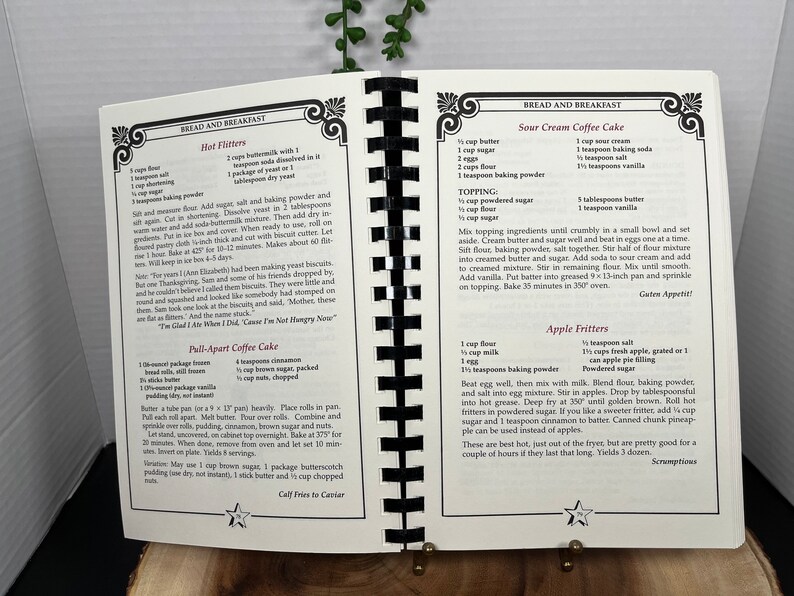 BREAD AND BREAKFAST
Hot Flitters
5 cups flour
1 teaspoon salt
1 cup shortening
¼ cup sugar
3 teaspoons baking powder
2 cups buttermilk with 1
teaspoon soda dissolved in it
1 package of yeast or 1
tablespoon dry yeast
Sift and measure flour. Add sugar, salt and baking powder and
sift again. Cut in shortening. Dissolve yeast in 2 tablespoons
warm water and add soda-buttermilk mixture. Then add dry in-
gredients. Put in ice box and cover. When ready to use, roll on
floured pastry cloth ¼-inch thick and cut with biscuit cutter. Let
rise 1 hour. Bake at 425° for 10–12 minutes. Makes about 60 flit-
ters. Will keep in ice box 4–5 days.
Note: "For years I (Ann Elizabeth) had been making yeast biscuits.
But one Thanksgiving, Sam and some of his friends dropped by,
and he couldn't believe I called them biscuits. They were little and
round and squashed and looked like somebody had stomped on
them. Sam took one look at the biscuits and said, 'Mother, these
are flat as flitters.' And the name stuck."
"I'm Glad I Ate When I Did, 'Cause I'm Not Hungry Now"
Pull-Apart Coffee Cake
1 (16-ounce) package frozen
bread rolls, still frozen
1¼ sticks butter
1 (3¾-ounce) package vanilla
pudding (dry, not instant)
4 teaspoons cinnamon
½ cup brown sugar, packed
½ cup nuts, chopped
Butter a tube pan (or a 9 × 13" pan) heavily. Place rolls in pan.
Pull each roll apart. Melt butter. Pour over rolls. Combine and
sprinkle over rolls, pudding, cinnamon, brown sugar and nuts.
Let stand, uncovered, on cabinet top overnight. Bake at 375° for
20 minutes. When done, remove from oven and let set 10 min-
utes. Invert on plate. Yields 8 servings.
Variation: May use 1 cup brown sugar, 1 package butterscotch
pudding (use dry, not instant), 1 stick butter and ½ cup chopped
nuts.
Calf Fries to Caviar
78
BREAD AND BREAKFAST
Sour Cream Coffee Cake
½ cup butter
1 cup sugar
2 eggs
2 cups flour
1 teaspoon baking powder
1 cup sour cream
1 teaspoon baking soda
½ teaspoon salt
1½ teaspoons vanilla
TOPPING:
½ cup powdered sugar
½ cup flour
½ cup sugar
5 tablespoons butter
1 teaspoon vanilla
Mix topping ingredients until crumbly in a small bowl and set
aside. Cream butter and sugar well and beat in eggs one at a time.
Sift flour, baking powder, salt together. Stir half of flour mixture
into creamed butter and sugar. Add soda to sour cream and add
to creamed mixture. Stir in remaining flour. Mix until smooth.
Add vanilla. Put batter into greased 9 × 13-inch pan and sprinkle
on topping. Bake 35 minutes in 350° oven.
Guten Appetit!
Apple Fritters
1 cup flour
⅓ cup milk
1 egg
1½ teaspoons baking powder
½ teaspoon salt
1½ cups fresh apple, grated or 1
can apple pie filling
Powdered sugar
Beat egg well, then mix with milk. Blend flour, baking powder,
and salt into egg mixture. Stir in apples. Drop by tablespoonsful
into hot grease. Deep fry at 350° until golden brown. Roll hot
fritters in powdered sugar. If you like a sweeter fritter, add ¼ cup
sugar and 1 teaspoon cinnamon to batter. Canned chunk pineap-
ple can be used instead of apples.
These are best hot, just out of the fryer, but are pretty good for a
couple of hours if they last that long. Yields 3 dozen.
Scrumptious
79